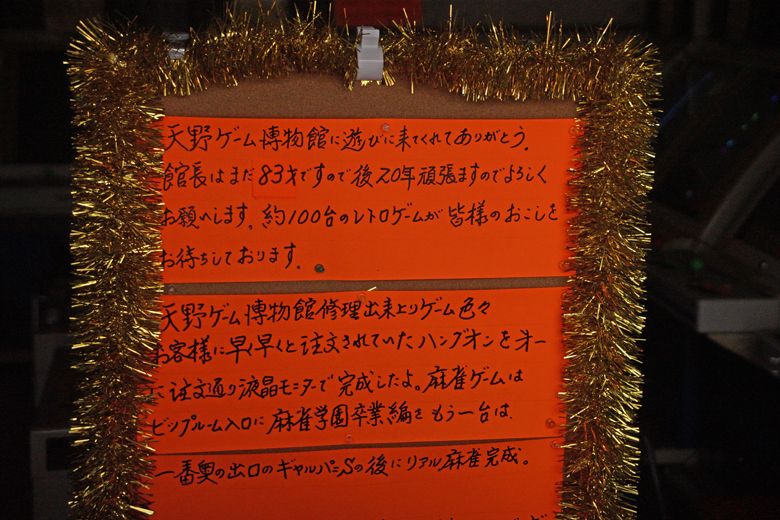 天野ゲーム博物館に遊びに来てくれてありがとう。
館長はまだ83才ですので後20年頑張ますのでよろしく
お願へします。約100台のレトロゲームが皆様のおこしを
お待ちしております。
天野ゲーム博物館修理出来上りゲーム色々
お客様に早く早くと注文されていたハングオンを オー
に注文通り液晶モニターで完成したよ。麻雀ゲームは
ビップルーム入口に麻雀学園卒業編を もう一台は、
一番奥の出口のギャルパニSの後にリアル麻雀完成。